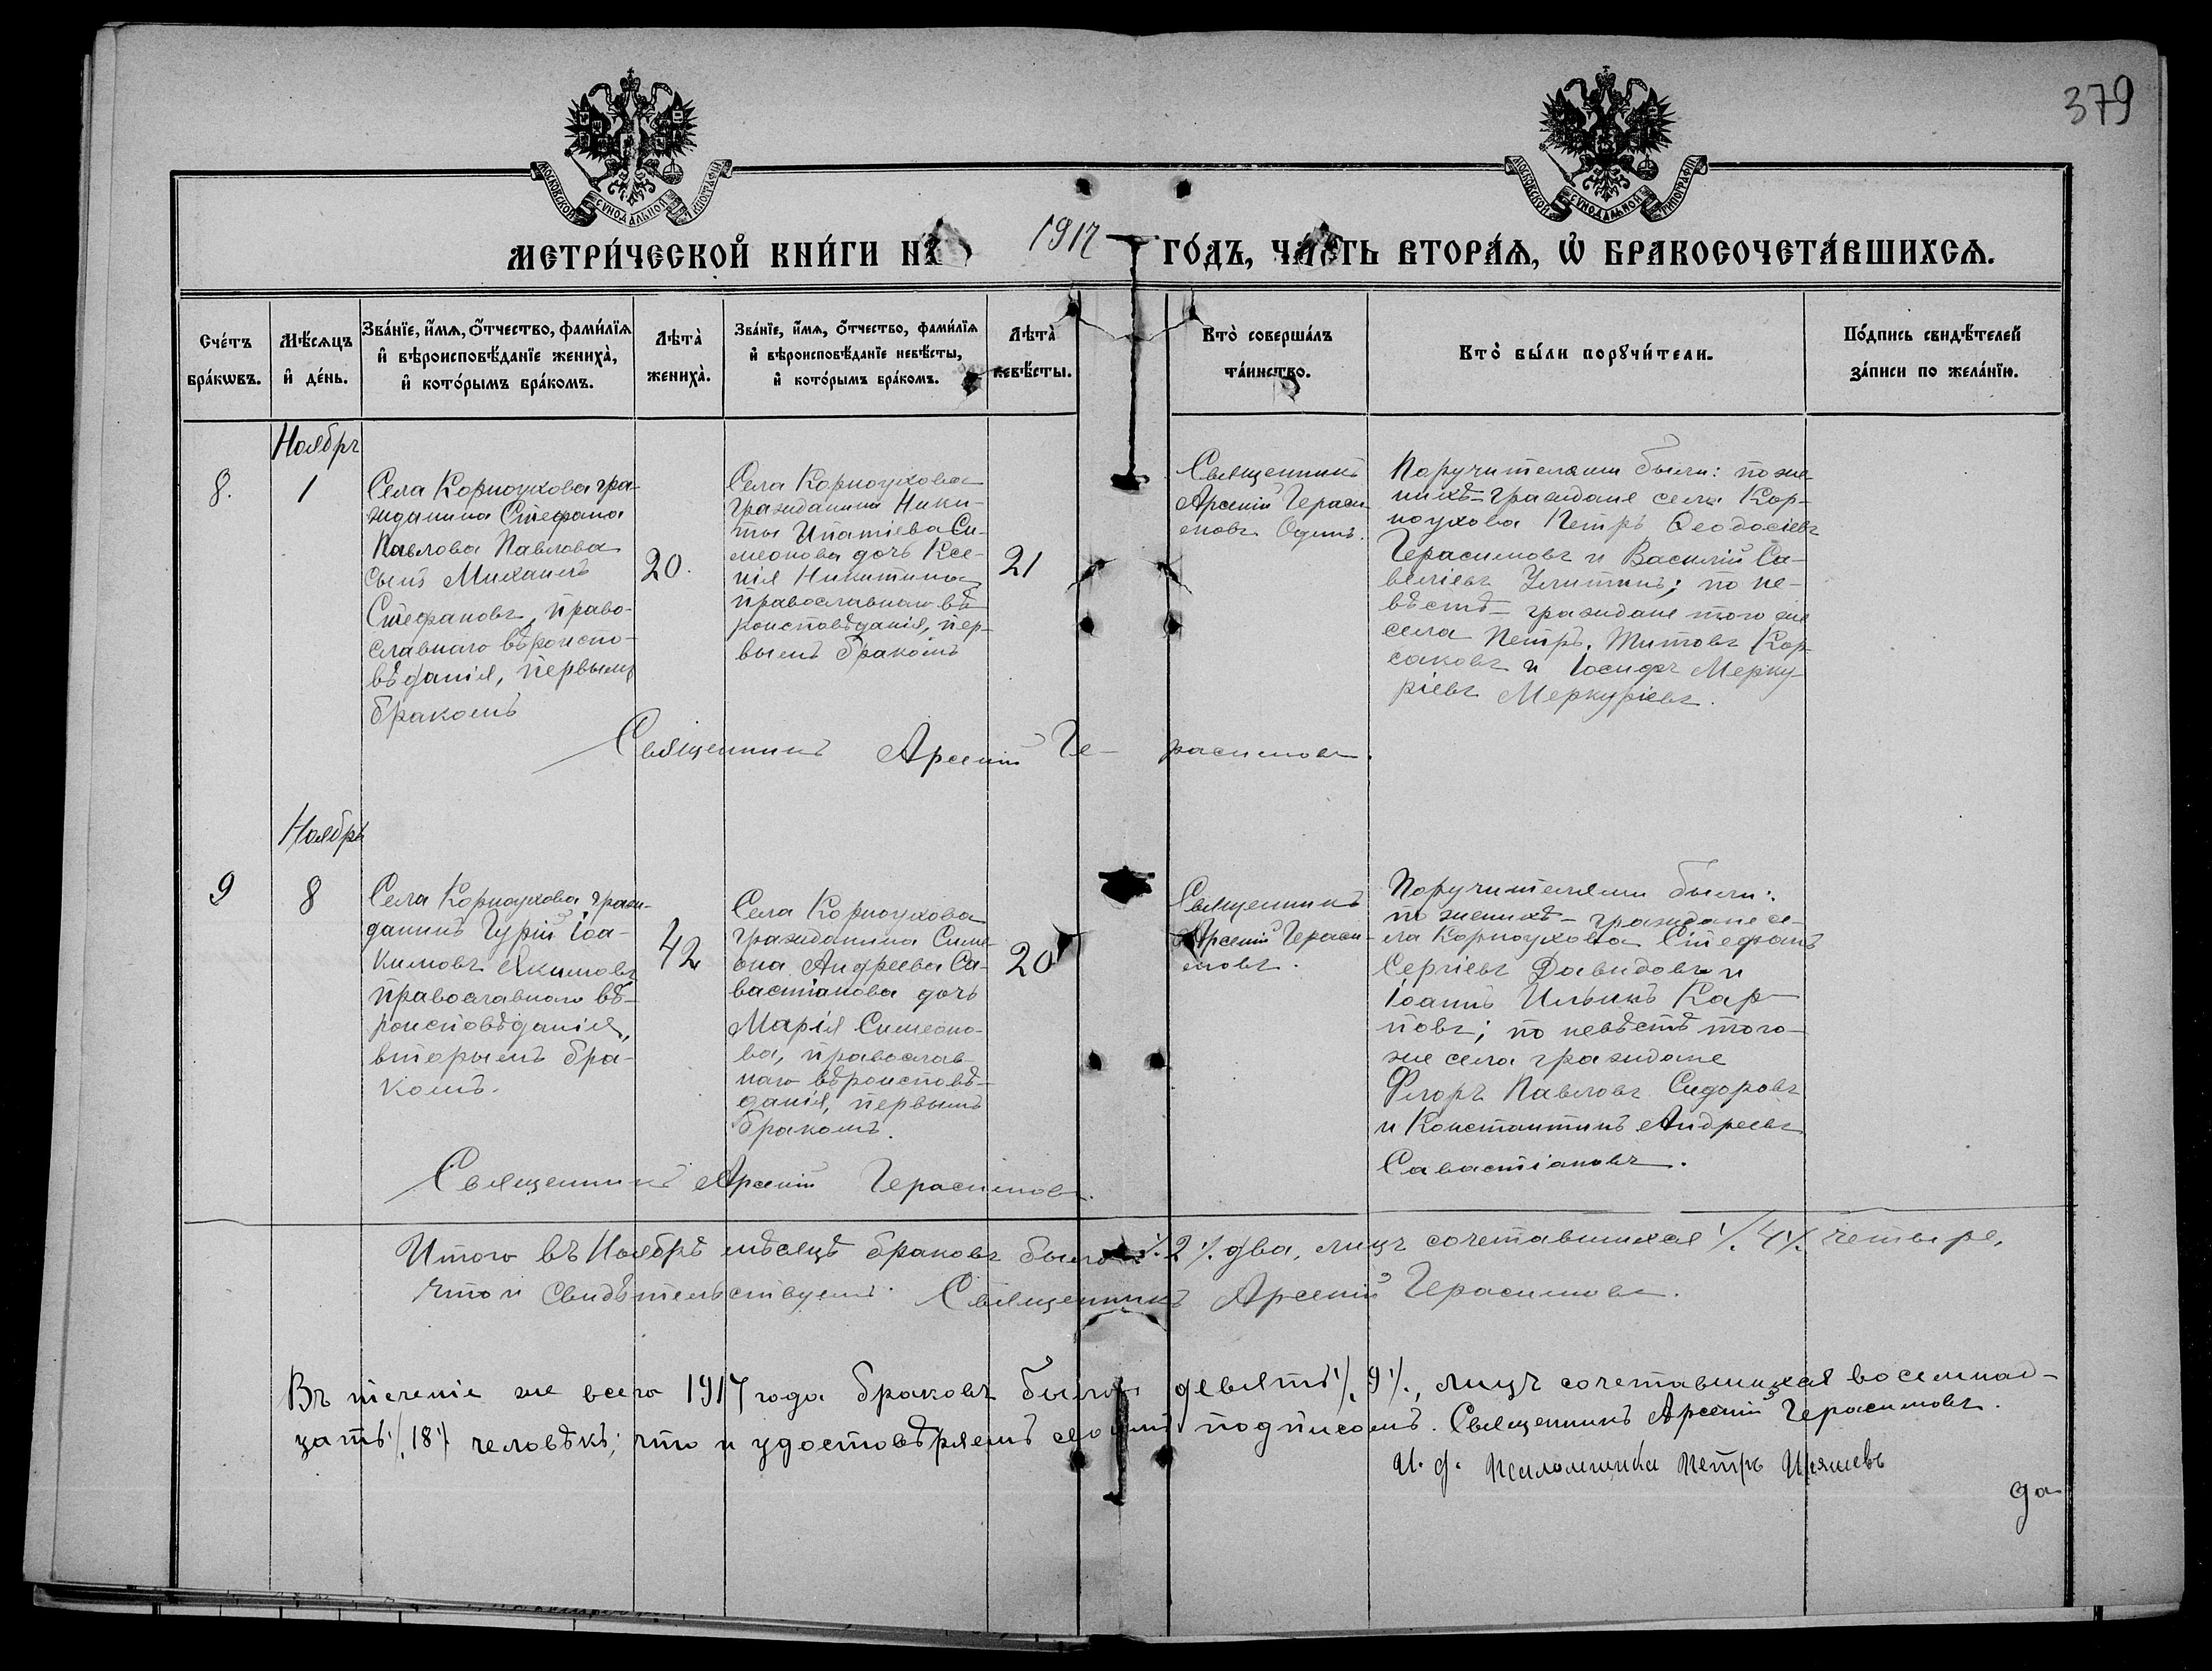 379
МОСКОВСКОЙ СУНОДАЛЬНОЙ ТИПОГРАФІИ
МОСКОВСКОЙ СУНОДАЛЬНОЙ ТИПОГРАФІИ
МЕТРИ́ЧЕСКОЙ КНИ́ГИ НА 1917 ГО́ДЪ, ЧА́СТЬ ВТОРА́Ѧ, Ѡ҆ БРАКОСОЧЕТА́ВШИХСѦ.
Сче́тъ
бра́кѡвъ.
Мѣ́сѧцъ
и҆ де́нь.
Зва́нїе, и҆́мѧ, ѻ҆́тчество, фами́лїѧ
и҆ вѣроисповѣ́данїе жениха̀,
и҆ кото́рымъ бра́комъ.
Лѣта̀
жениха̀.
Зва́нїе, и҆́мѧ, ѻ҆́тчество, фами́лїѧ
и҆ вѣроисповѣ́данїе невѣ́сты,
и҆ кото́рымъ бра́комъ.
Лѣта̀
невѣ́сты.
Кто̀ соверша́лъ
та́инство.
Кто̀ бы́ли порꙋчи́тели.
По́дпись свидѣ́телей
за́писи по жела́нїю.
8.
Ноябрь
1
Села Корноухова гра-
жданина Стефана
Павлова Павлова
сынъ Михаилъ
Стефановъ, право-
славнаго вѣроиспо-
вѣданія, первымъ
бракомъ
20.
Села Корноухова
гражданина Ники-
ты Ипатіева Си-
меонова дочь Ксе-
нія Никитина
православнаго вѣ-
роисповѣданія, пер-
вымъ бракомъ
21
Священникъ
Арсеній Гераси-
мовъ Одинъ.
Поручителями были: по же-
нихѣ – граждане села Кор-
ноухова Петръ Ѳеодосіевъ
Герасимовъ и Василій Са-
веліевъ Улитинъ; по не-
вѣстѣ – граждане того же
села Петръ Титовъ Кор-
саковъ и Іосифъ Мерку-
ріевъ Меркуріевъ.
Священникъ Арсеній Герасимовъ.
9
Ноябрь
8
Села Корноухова граж-
данинъ Гурій Іоа-
кимовъ Якимовъ
православнаго вѣ-
роисповѣданія,
вторымъ бра-
комъ.
42
Села Корноухова
гражданина Симе-
она Андреева Са-
вастіанова дочь
Марія Симеоно-
ва, православ-
наго вѣроисповѣ-
данія, первымъ
бракомъ.
20
Священникъ
Арсеній Гераси-
мовъ.
Поручителями были:
по женихѣ – граждане се-
ла Корноухова Стефанъ
Сергіевъ Давидовъ и
Іоаннъ Ильинъ Кар-
повъ; по невѣстѣ того-
же села граждане
Флоръ Павловъ Сидоровъ
и Константинъ Андреевъ
Савастіановъ.
Священникъ Арсеній Герасимовъ.
Итого въ Ноябрѣ мѣсяцѣ браковъ было ·/. 2 ·/. два, лицъ сочетавшихся ·/. 4 ·/. четыре,
что и свидѣтельствуемъ. Священникъ Арсеній Герасимовъ.
Въ теченіе же всего 1917 года браковъ было девять ·/. 9 ·/., лицъ сочетавшихся восемнад-
цать ·/. 18 ·/. человѣкъ; что и удостовѣряемъ своимъ подписомъ. Священникъ Арсеній Герасимовъ.
И. д. псаломщика Петръ
да